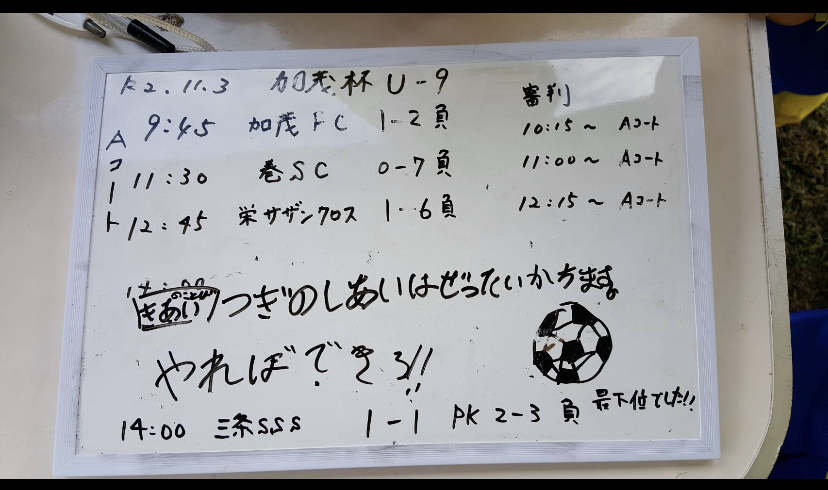 R2.11.3 加茂杯 U-9
審判
Aコート
9:45 加茂FC 1-2 負
10:15～ Aコート
11:30 巻SC 0-7 負
11:00～ Aコート
12:45 栄サザンクロス 1-6 負
12:15～ Aコート
14:00
きあいのことば つぎのしあいはぜったいかちます。
やればできる!!
14:00 三条SSS 1-1 PK 2-3 負 最下位でした!!